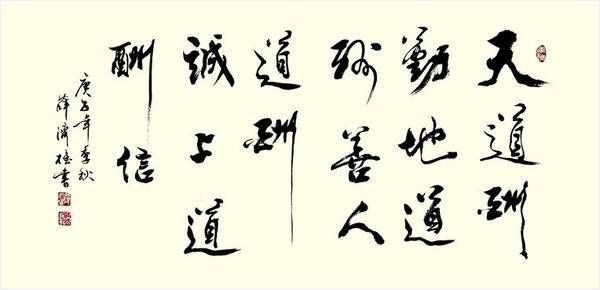 天道酬
勤地道
酬善人
道酬
誠道
酬信
庚子年季秋
薛濟書